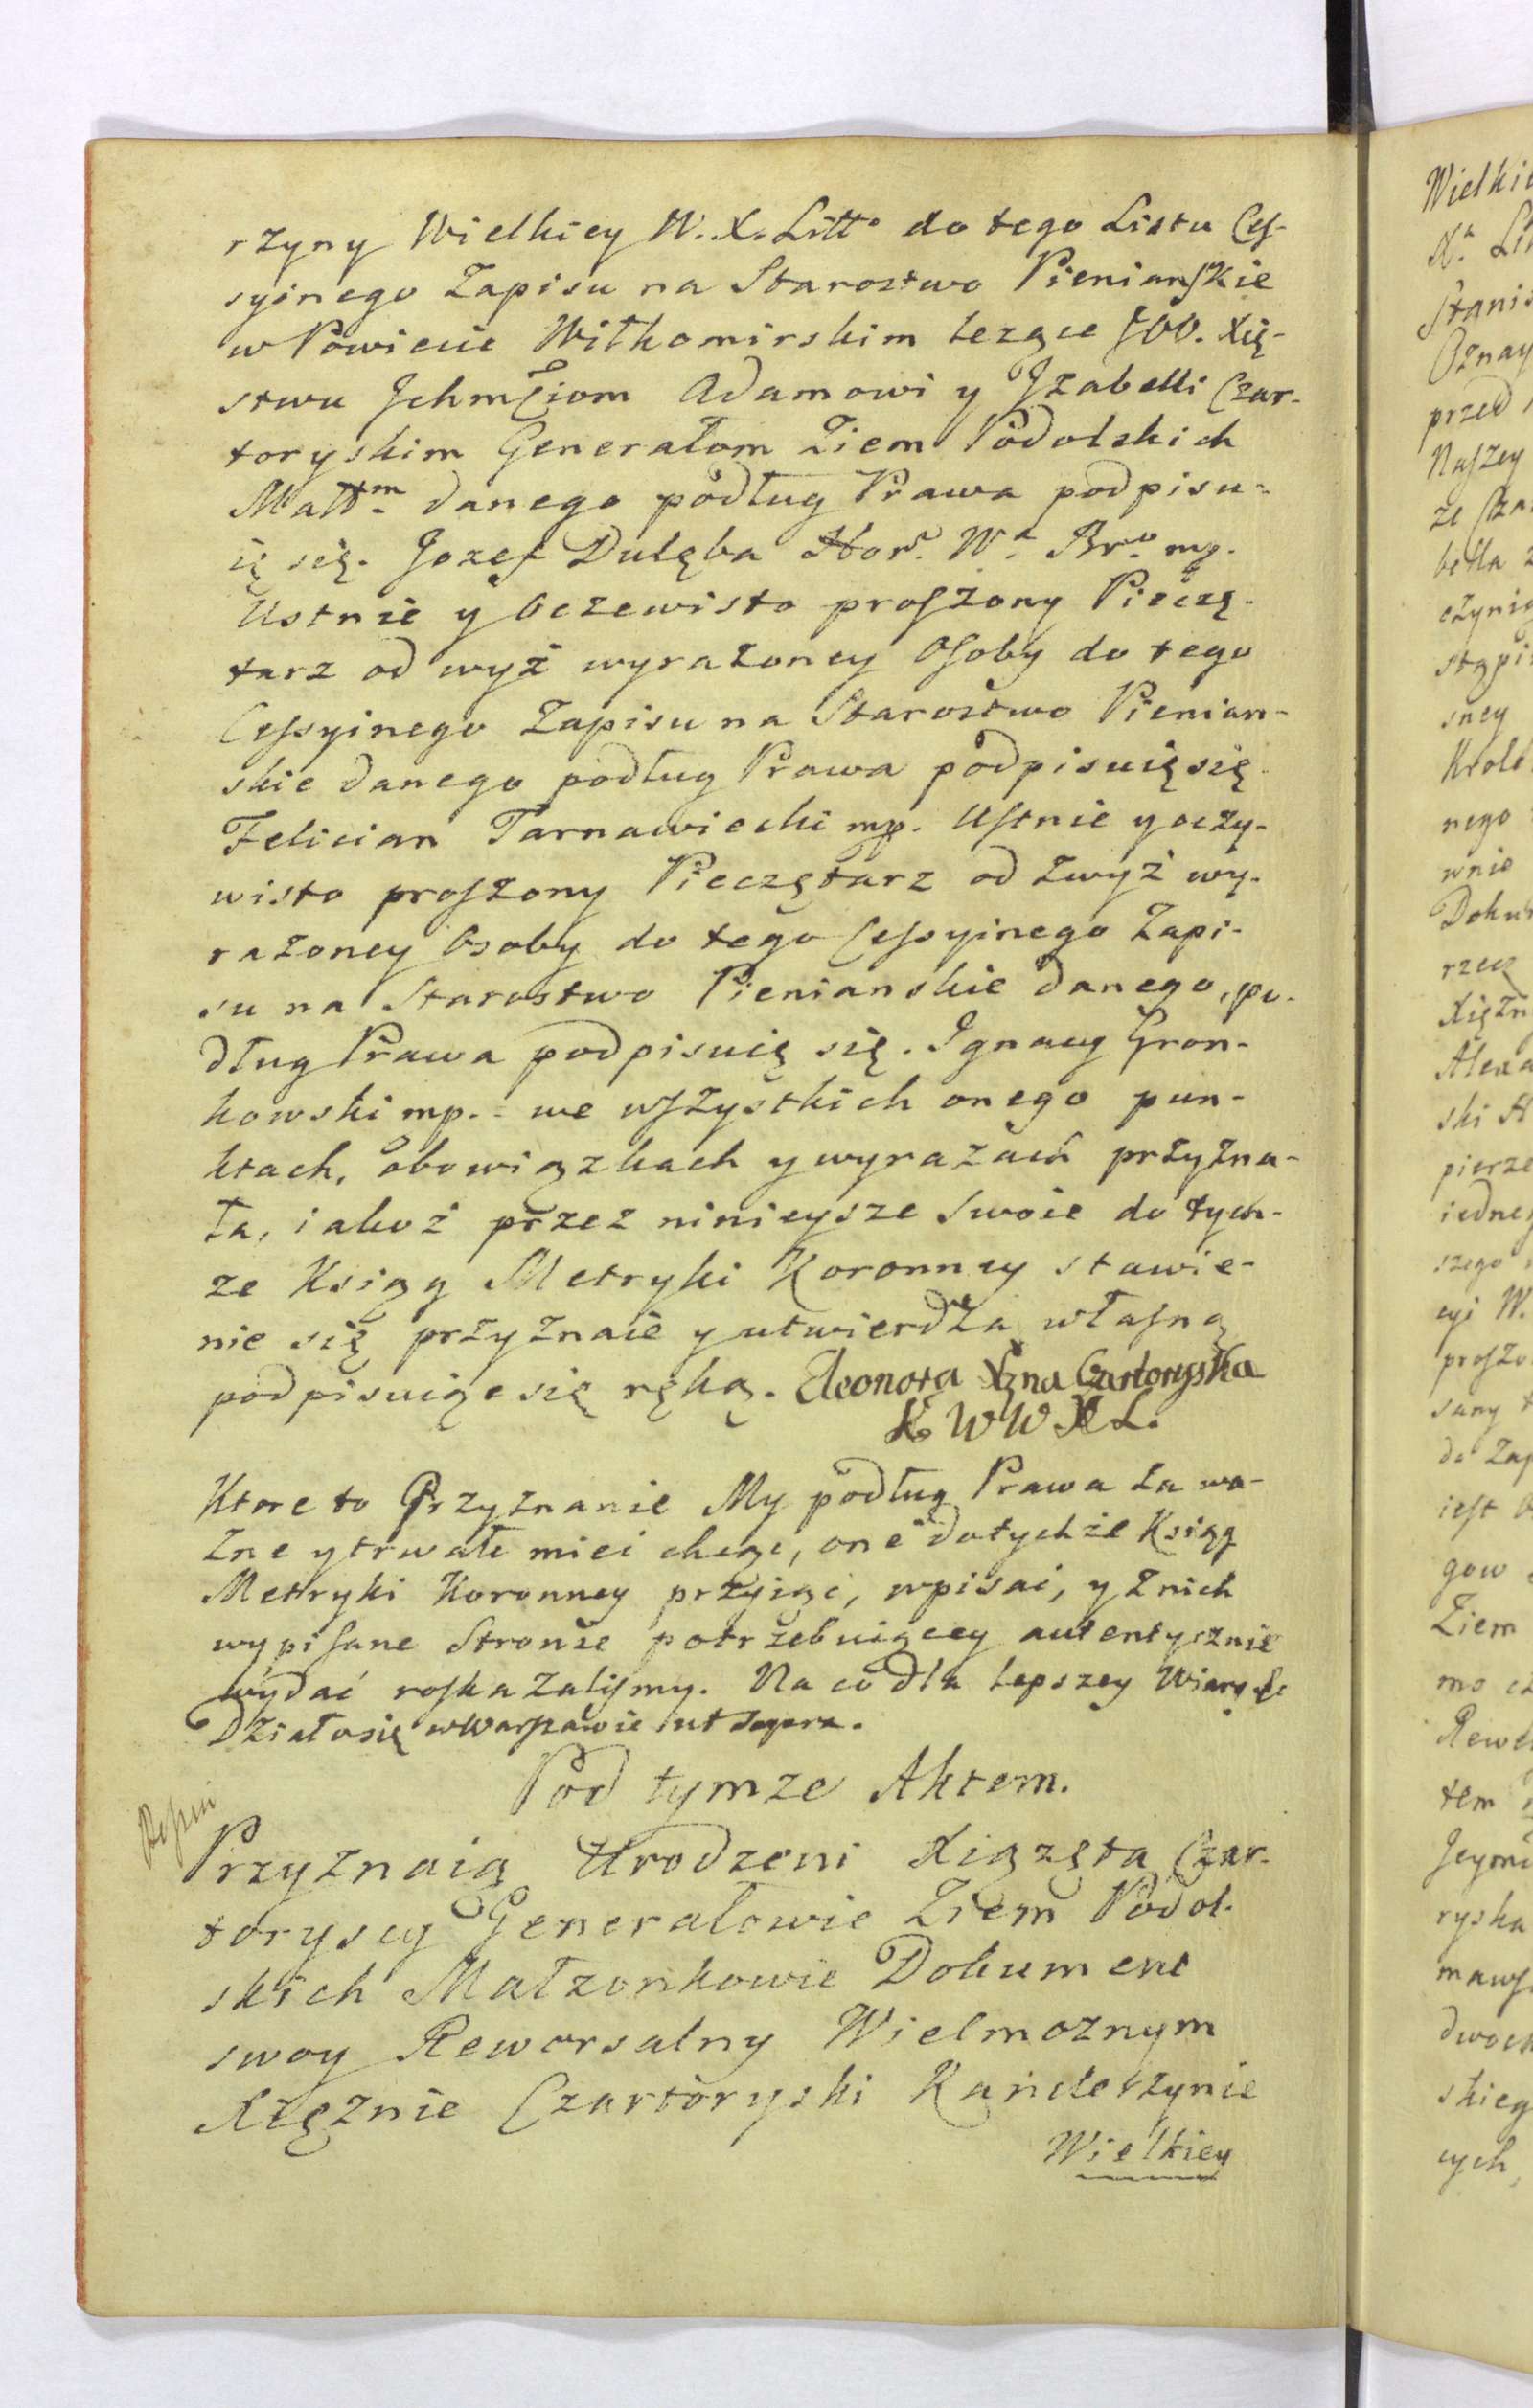 rzyny Wielkiey W. X. Litt° do tego Listu Ces-
syinego Zapisu na Starostwo Pienianskie
w Powiecie Wiłkomirskim lezące JOO. Xię-
stwu Jchmciom Adamowi y Jzabelli Czar-
toryskim Generałom Ziem Podolskich
Małłm danego podług Prawa podpisu-
ię się. Jozef Dulęba Hor. Wa Bro mp.
Ustnie y oczewisto proszony Pieczę-
tarz od wyż wyrażoney Osoby do tego
Cessyinego Zapisu na Starostwo Pienian-
skie danego podług Prawa podpisuię się
Felician Tarnawiecki mp. Ustnie y oczy-
wisto proszony Pieczętarz od zwyż wy-
rażoney Osoby do tego Cessyinego Zapi-
su na Starostwo Pienianskie danego, po-
dług Prawa podpisuię się. Jgnacy Gron-
kowski mp. we wszystkich onego pun-
ktach, obowiązkach y wyrażach przyzna-
ła, iakoż przez ninieysze swoie do tych-
ze Ksiąg Metryki Koronney stawie-
nie się przyznaie y utwierdza własną
podpisuiąc się ręką. Eleonora Xzna Czartoryska
K W W X L.
Ktore to Przyznanie My podług Prawa za wa-
żne y trwałe mieć chcąc, one do tychże Ksiąg
Metryki Koronney przyiąć, wpisać, y z nich
wypisane Stronie potrzebuiącey autentycznie
wydać roskazalismy. Na co dla lepszey Wiary &c
Działosię w Warszawie ut supra.
Pod tymze Aktem.
Przyznaią Urodzeni Xiązęta Czar-
toryscy Generałowie Ziem Podol-
skich Małzonkowie Dokument
swoy Rewersalny Wielmoznym
Xięznie Czartoryski Kanclerzynie
Wielkiey